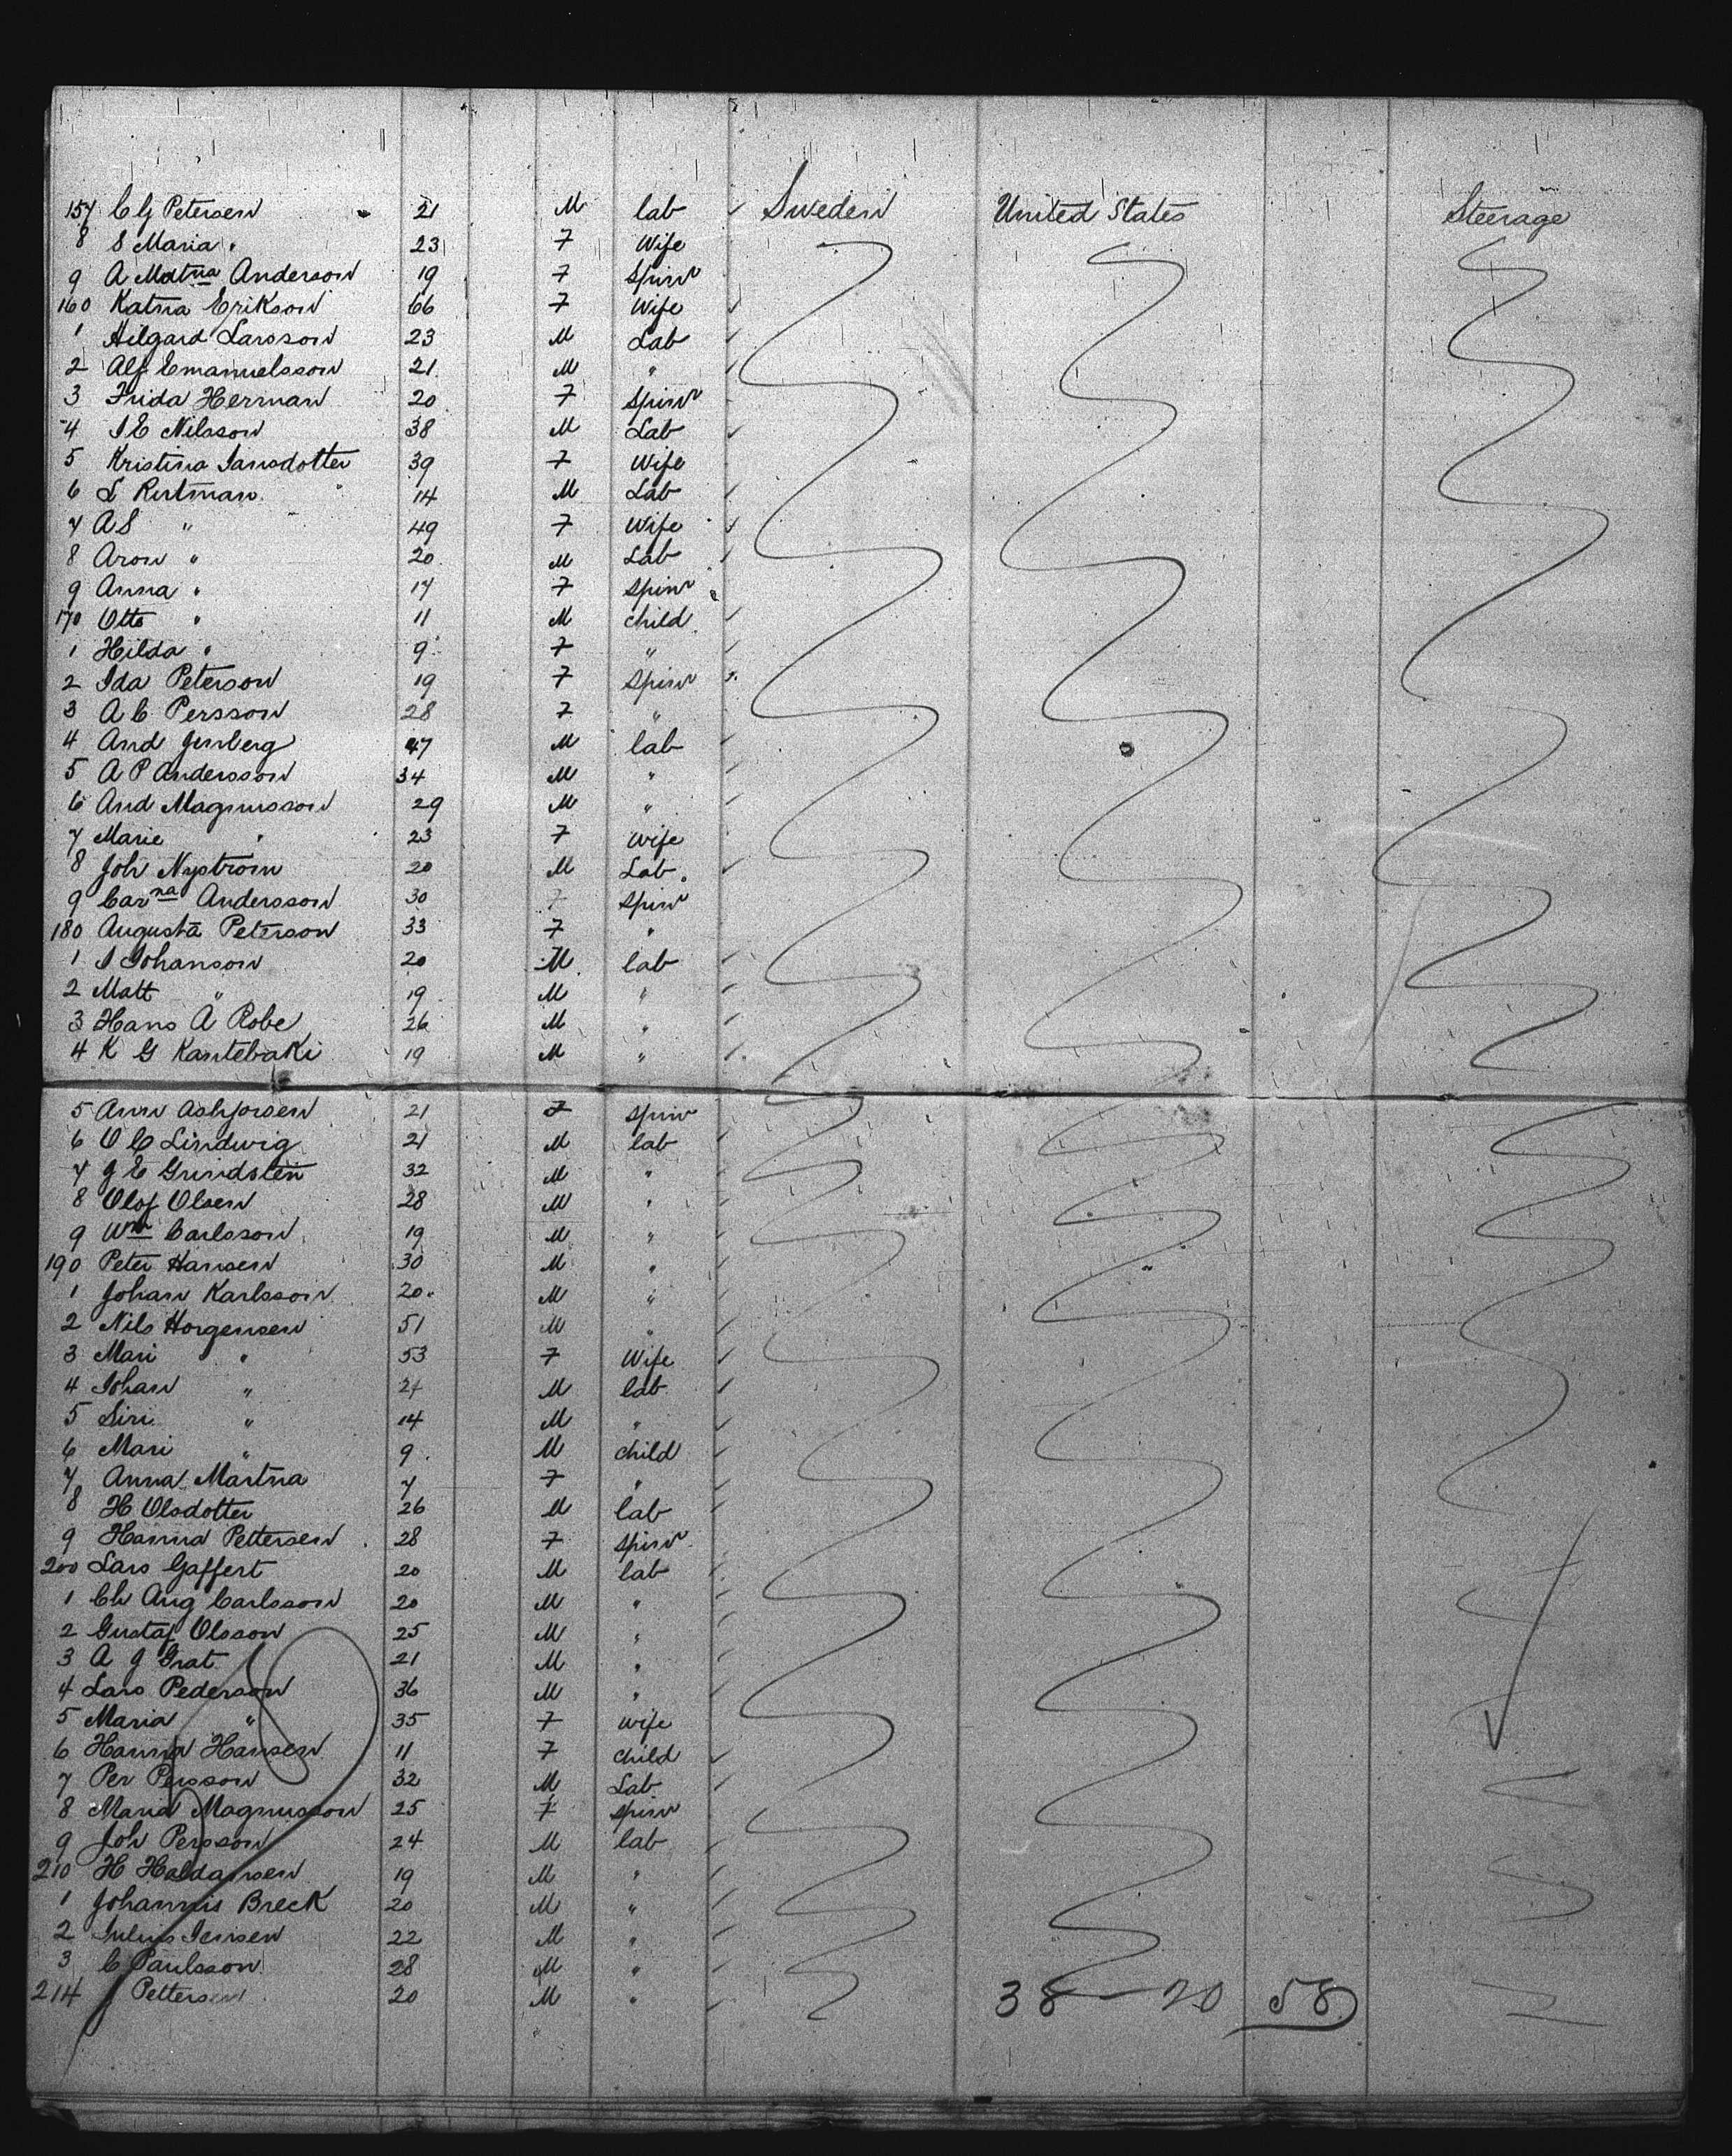 157 C G Petersen 21 M lab Sweden United States Steerage
8 S Maria " 23 F Wife
9 A Matna Anderson 19 F Spinr
160 Katna Erikson 66 F Wife
1 Hilgard Larsson 23 M Lab
2 Alf Emanuelsson 21 M "
3 Frida Herman 20 F Spinr
4 I E Nilsson 38 M Lab
5 Kristina Jansdotter 39 F Wife
6 L Ristman 14 M Lab
7 A S " 49 F Wife
8 Aron " 20 M Lab
9 Anna " 17 F Spinr
170 Otto " 11 M child
1 Hilda " 9 F "
2 Ida Peterson 19 F Spinr
3 A C Persson 28 F "
4 And 47 M lab
5 A P Andersson 34 M "
6 And Magnusson 29 M "
7 Marie " 23 F Wife
8 Joh Nystrom 20 M Lab.
9 Carna Andersson 30 F Spinr
180 Augusta Peterson 33 F "
1 I Johanson 20 M lab
2 Matt " 19 M "
3 Hans A Robe 26 M "
4 K G Kantebaki 19 M "
5 Ann Asbjorsen 21 F Spinr
6 O C Lindwig 21 M lab
7 J E Grindsten 32 M "
8 Olof Olsen 28 M "
9 Wm Carlsson 19 M "
190 Peter Hansen 30 M "
1 Johan Karlsson 20 M "
2 Nils Horgensen 51 M "
3 Mari " 53 F Wife
4 Johan " 24 M lab
5 Siri " 14 M "
6 Mari " 9 M child
7 Anna Martna 7 F "
8 H Olsdotter 26 M lab
9 Hanna Pettersen 28 F Spinr
200 Lars Gaffert 20 M lab
1 Ch Aug Carlsson 20 M "
2 Gustaf Olsson 25 M "
3 A J Grat 21 M "
4 Lars Pederson 36 M "
5 Maria " 35 F Wife
6 Hanna Hansen 11 F child
7 Per Persson 32 M Lab
8 Maria Magnusson 25 F Spinr
9 Joh Persson 24 M lab
210 H Haldansen 19 M "
1 Johannis Breck 20 M "
2 Julius Jensen 22 M "
3 C Paulsson 28 M "
214 Pettersen 20 M "
38 — 20 58